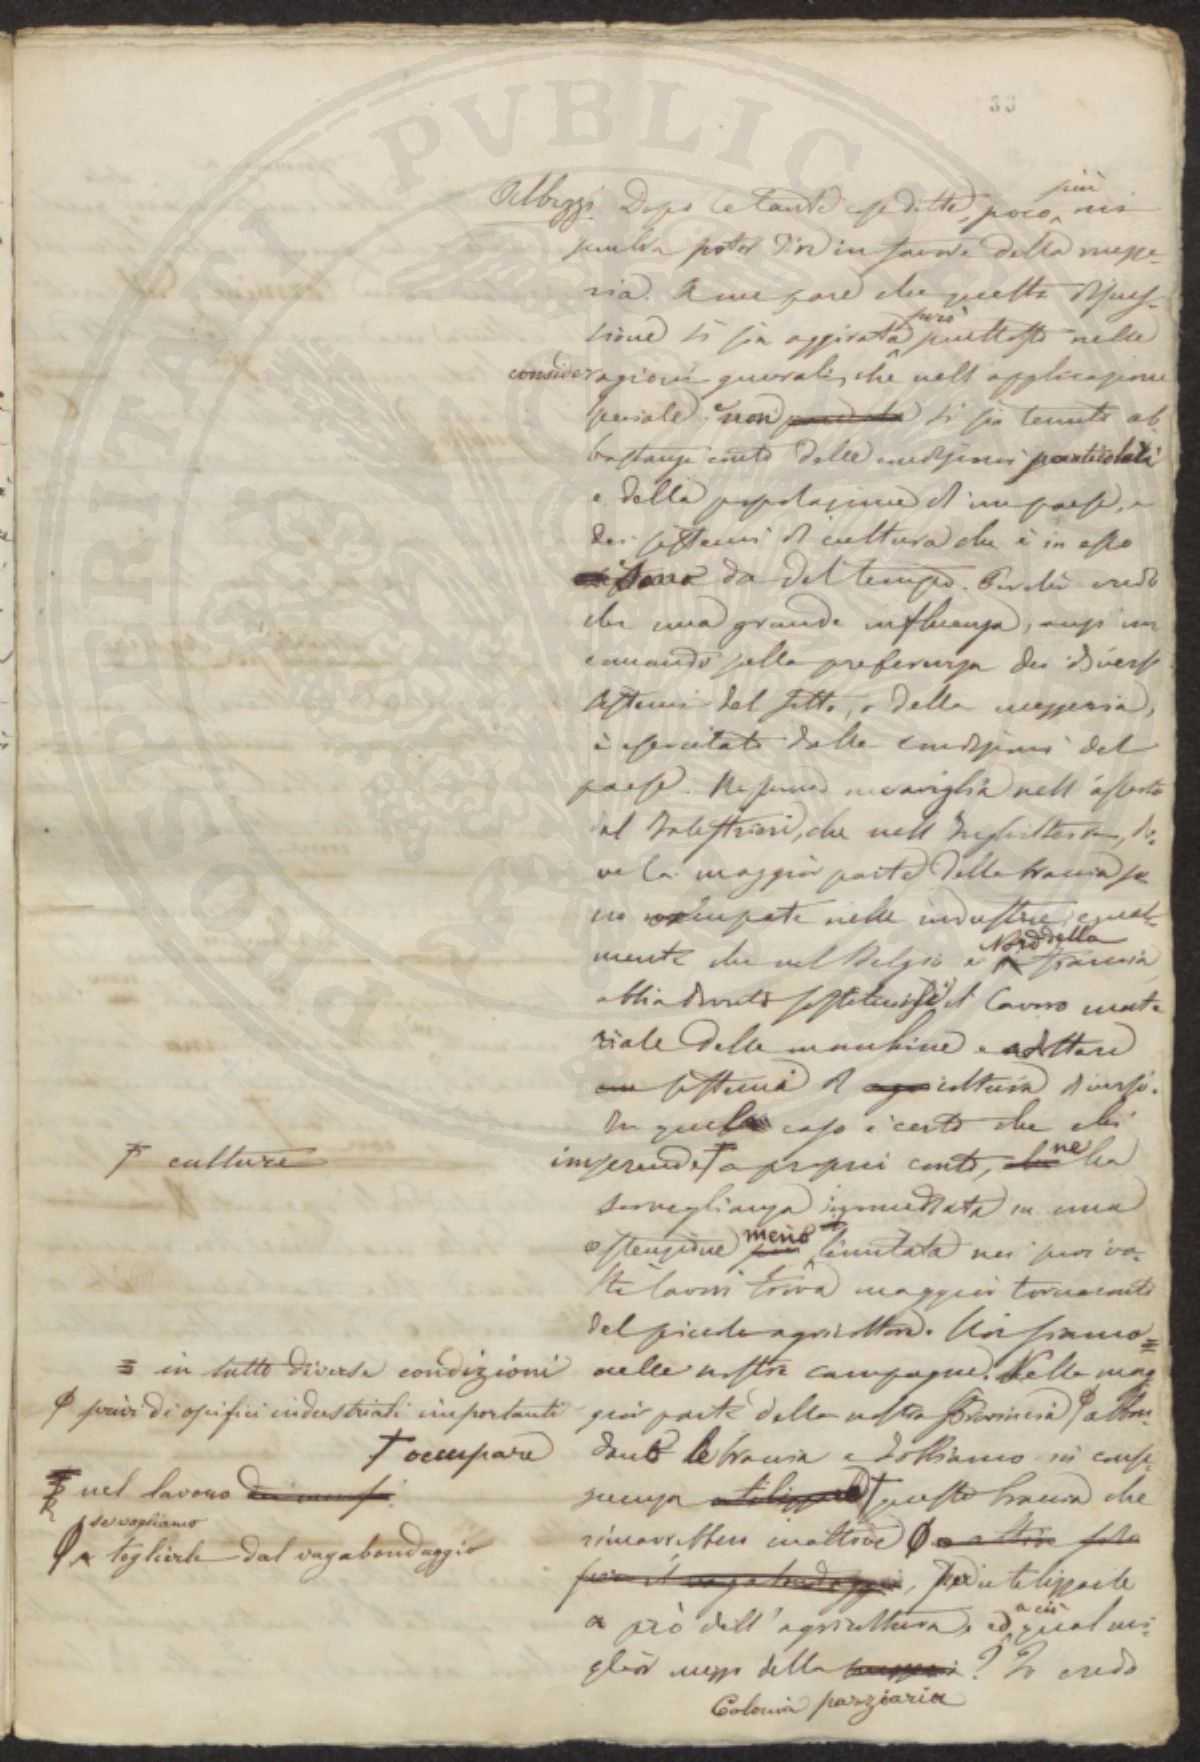 33
Albizzi. Dopo le tante cose dette, poco più mi
sembra poter dire in favore della mezze-
ria. A me pare che questa discus-
sione si sia aggirata però piuttosto nelle
considerazioni generali, che nell'applicazione
speciale e non si sia tenuto ab-
bastanza conto delle condizioni particolari
e della popolazione di un paese, e
dei sistemi di cultura che in esso
sono da del tempo. Perchè credo
che una grande influenza, anzi un
comando sulla preferenza dei diversi
sistemi del fitto, o della mezzeria,
è esercitato dalle condizioni del
paese. Nessuna meraviglia nell'asserto
del Balestrieri, che nell'Inghilterra, do-
ve la maggior parte delle braccia so-
no occupate nelle industrie, egual-
mente che nel Belgio e Nord della Francia
abbia dovuto sostituirsi il lavoro mate-
riale delle macchine e adottare
sistema di cultura diverso.
In quel caso è certo che chi
imprende † a proprio conto, ne ha
sorveglianza immediata in una
estensione meno limitata nei suoi va-
sti lavori trova maggior tornaconto
del piccolo agricoltore. Noi siamo =
nelle nostre campagne. Nella mag-
gior parte della nostra Provincia φ abbon-
dano le braccia e dobbiamo in conse-
guenza † queste braccia che
rimarrebbero inattive φ
per utilizzarle
a prò dell'agricoltura, ed a ciò qual mi-
glior mezzo della ? Io credo
Colonia parziaria
† culture
= in tutto diverse condizioni
φ privi di opifici industriali importanti
† occupare
nel lavoro
φ se vogliamo toglierle dal vagabondaggio
POSTERITATI PVBLICAE